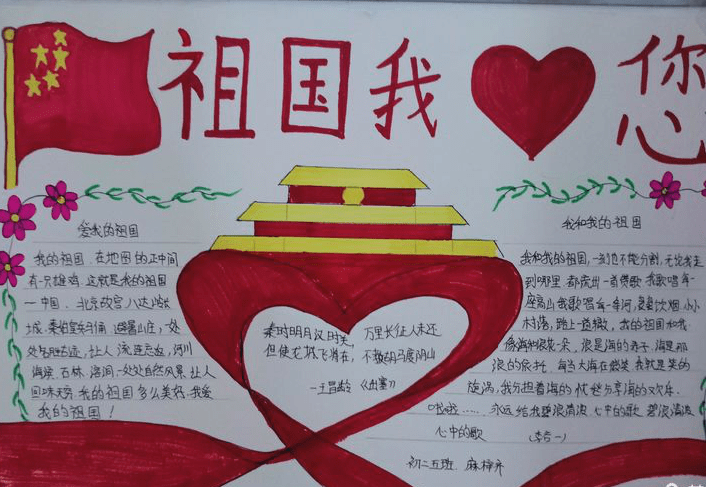 祖国我 您
爱我的祖国
我的祖国.在地图的正中间
有一只雄鸡.这就是我的祖国
一中国.北京故宫.八达岭长
城.秦始皇兵马俑 避暑山庄,处
处名胜古迹,让人 流连忘返,河川
海滨.石林.溶洞一处处自然风景.让人
回味无穷 我的祖国多么美好.我爱
我的祖国!
秦时明月汉时关,万里长征人未还
但使龙城飞将在,不教胡马度阴山
—王昌龄《出塞》
我和我的祖国
我和我的祖国,一刻也不能分割,无论我走
到哪里.都流出一首赞歌 我歌唱每一
座高山我歌唱每一条河,袅袅炊烟.小小
村落,路上一道辙,我的祖国和我.
像海和浪花一朵,浪是海的赤子.海是那
浪的依托,每当大海在微笑 我就是笑的
旋涡,我分担着海的忧愁分享海的欢乐.
永远给我碧浪清波 心中的歌 碧浪清波
心中的歌
初二五班